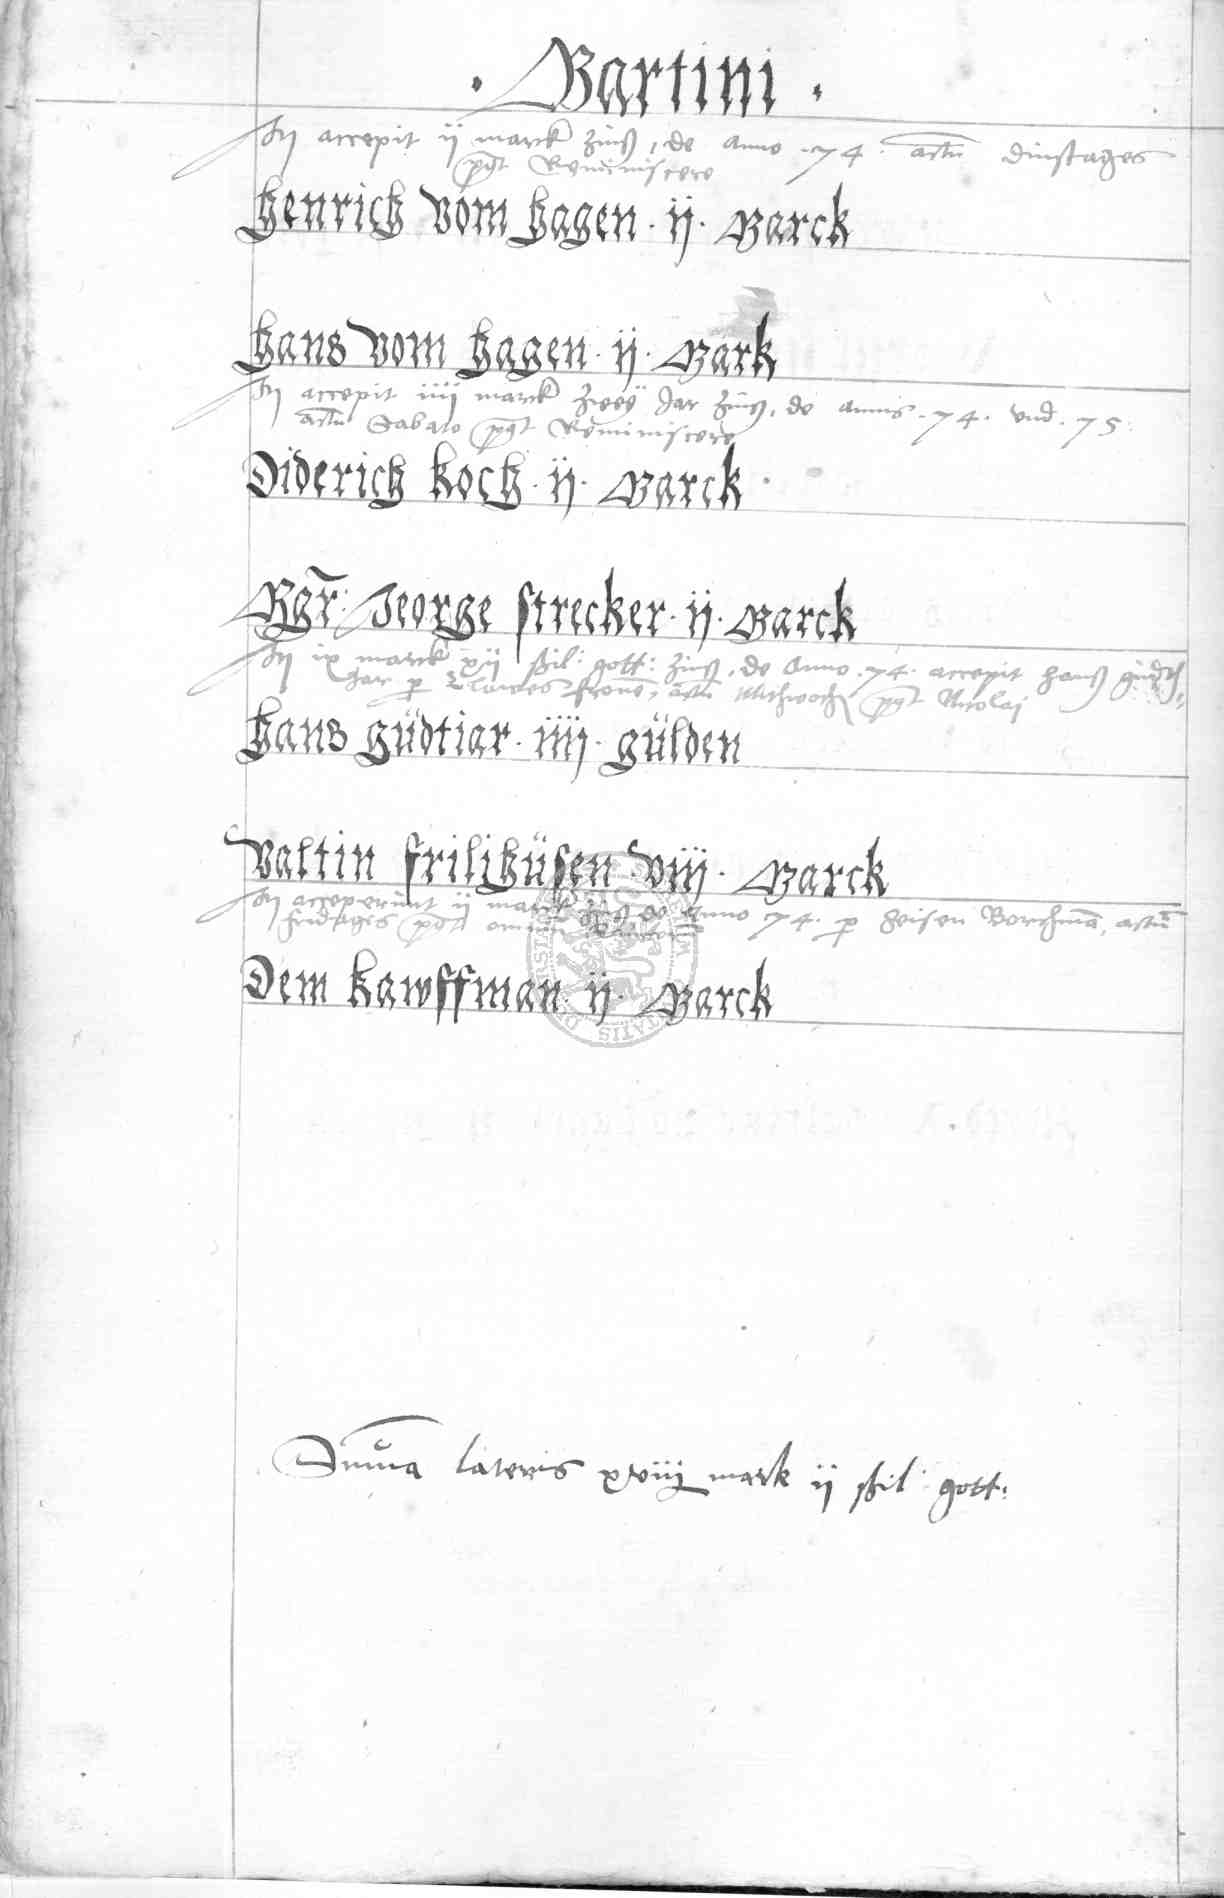 · Martini ·
accepit ij marck zinß, de Anno .74. actu dinstages
post Reminiscere
Henrich vom Hagen · ij · Marck
Hans vom Hagen · ij · Mark
accepit iiij marck zwey Jar zinß, de annis .74. vnd .75.
actu Sabato post Reminiscere
Diderich Koch · ij · Marck ·
Mgr: Jeorge Strecker · ij · Marck
ix marck xij ßil: gott: zinß, de Anno .74. accepit Hanß
per Clawes actu Mitwoch post Nicolaj
Hans Güdtiar · iiij · gülden
Valtin Frilighüsen · viij · Marck
acceperunt ij marck zinß de Anno 74. per Heisen Borchman, actu
fridages post omnium
Dem Kawffman · ij · Marck
Summa lateris xviij mark ij ßil gott: